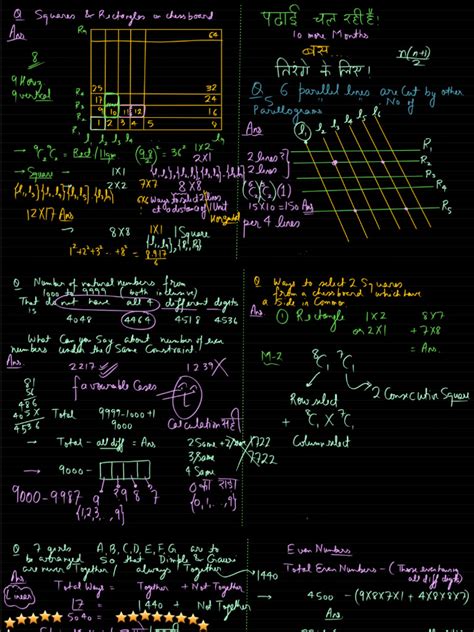 Q Squares & Rectangles in chessboard
Ans
8
9 Horiz
9 vertical
R9
64
25 32
17 24
9 10 11 12 16
1 2 3 4 5 8
R4
R3
R2
R1
Square
1X1
2X2
7X7
8X8
12X17 Ans
8X8
1X1
1 Square
1²+2²+3²+ .. +8²=
पढाई चल रही है!
10 more Months
बस...
तिरंगे के लिए!
n(n+1)
2
Q 6 parallel lines are cut by other
5 " " No of
Parallograms
Ans
l1 l2 l3 l4 l5 l6
R1
R2
R3
R4
R5
2 lines
2 lines
15X10 = 150 Ans
per 4 lines
Q Number of natural numbers from
1000 to 9999 (both inclusive)
That do not have all 4 different digits
4048 4464 4518 4536
What Can You Say about number of even
numbers under the Same Constraint.
Ans
2217 ✓ 1239 X
favourable Cases
81
36
486
405X
4536
Total 9999-1000+1
9000
→ Total - all diff = Ans
2 Same +
3 Same
4 Same
→ 9000-
9000-9987 9 9 8 7
{1,2,3, ..,9}
{0,1, ..,9}
0 का राडा
Q Ways to select 2 Squares
from a chessboard which have
a Side in Common
Ans
① Rectangle 1X2 8X7
or 2X1 + 7X8
= Ans.
M-2
⁸C₁ ⁷C₁
Row select
2 Consecutive Square
+ ⁸C₁ X ⁷C₁
Column select
Q 7 girls A,B,C,D,E,F,G are to
be arranged So that Dimple & Gauri
are never Together / always Together
Ans
Linear
Total Ways = Together + Not Together
= 1440 + Not Together
5040
1440
Even Numbers
Total Even Numbers - (Those even having
all diff digits)
→ 4500 - (9X8X7X1 +